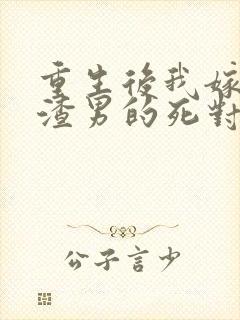 重生後我嫁
渣男的死對
公子言少